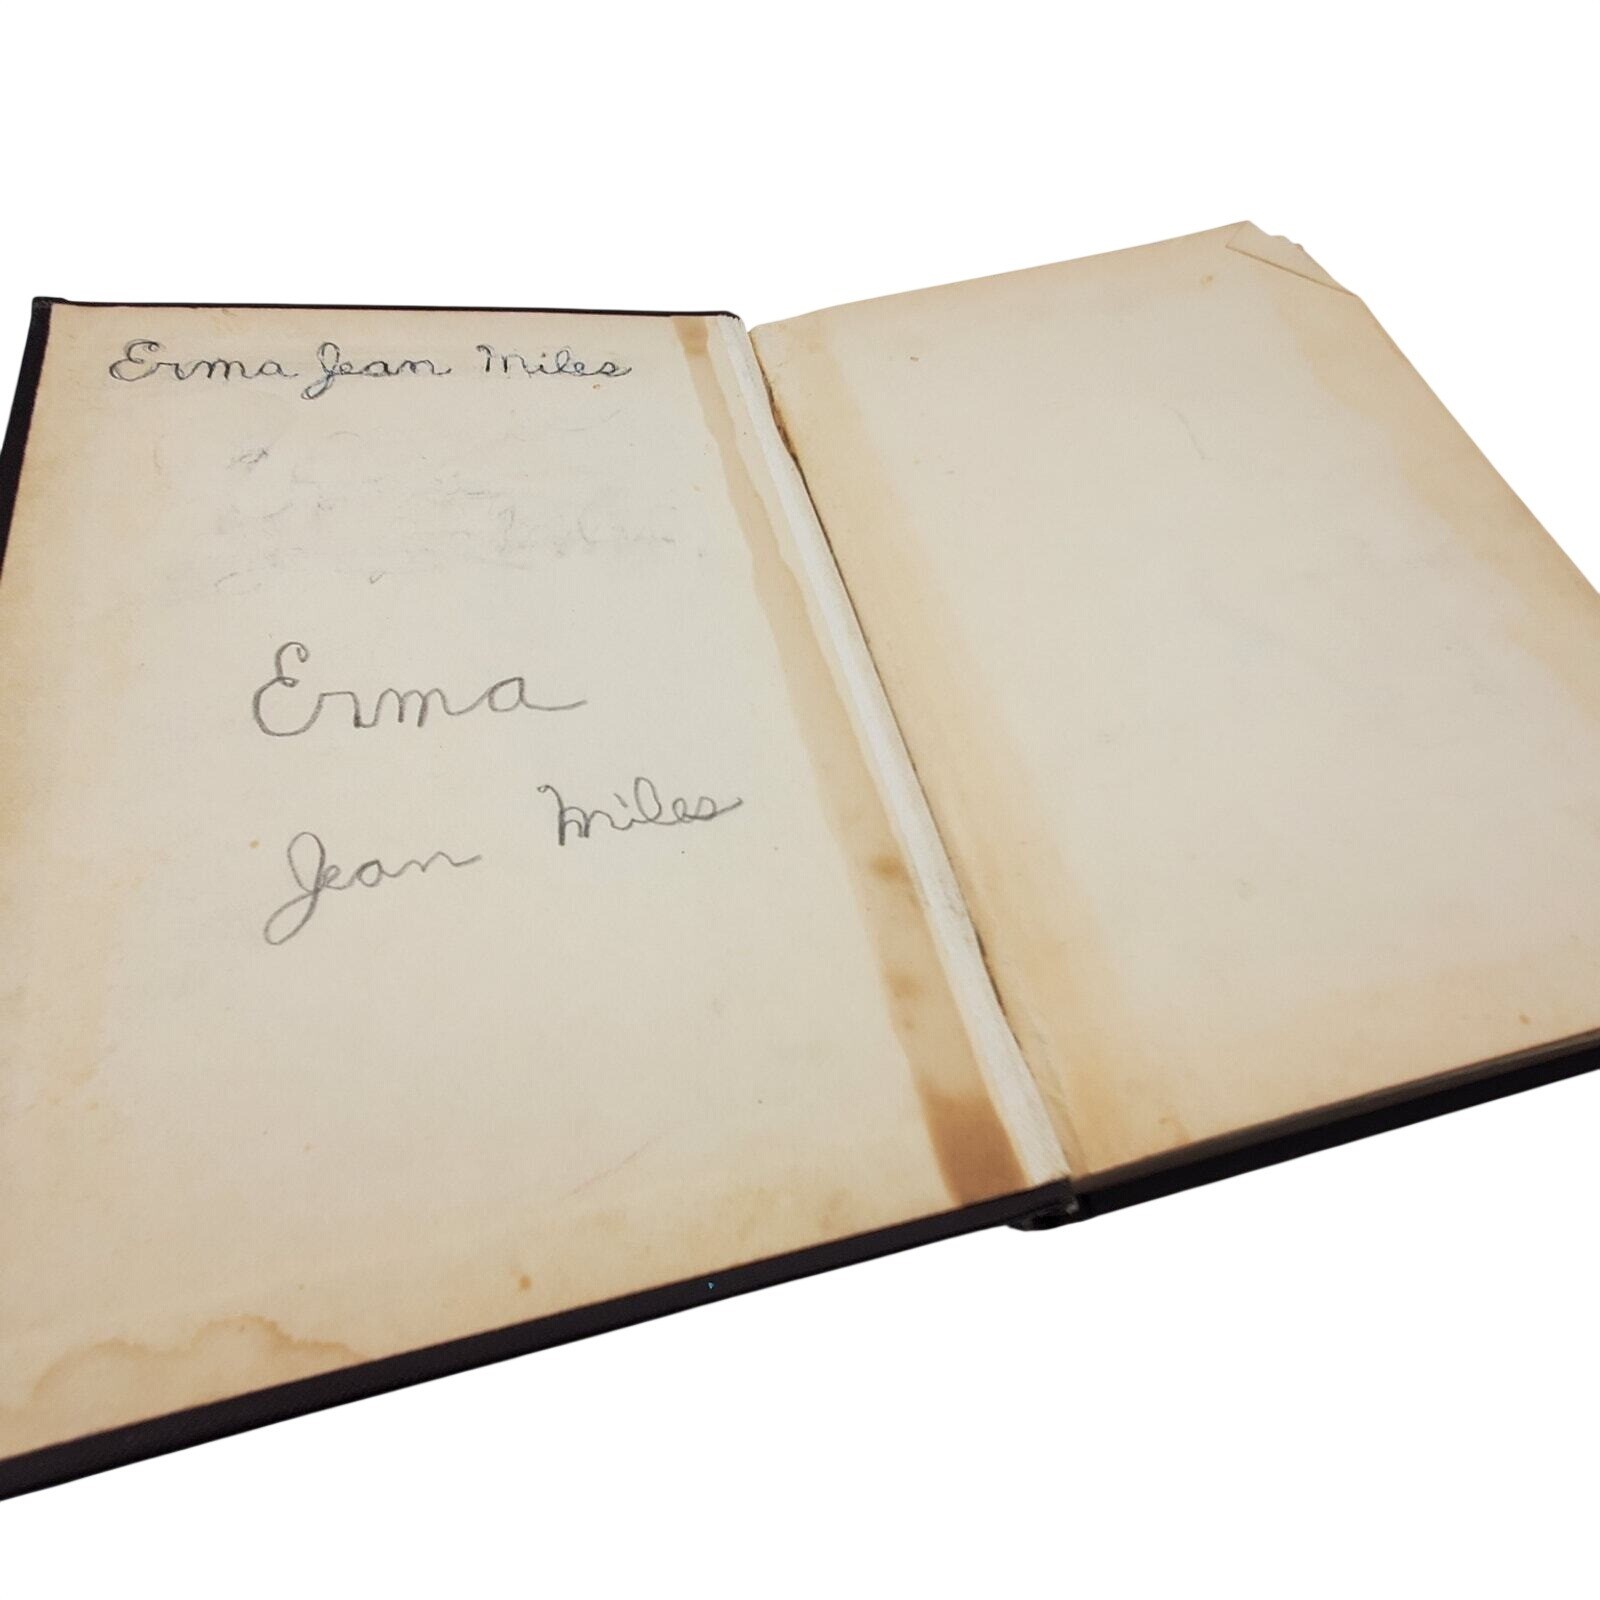 Erma Jean Miles
Erma
Jean Miles